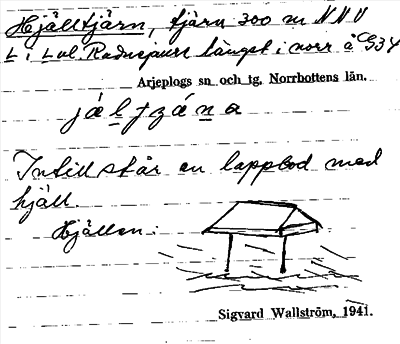 Hjälltjärn, tjärn 300 m NNV
L i Lul. Radnejaure längst i norr å CG34
Arjeplogs sn och tg, Norrbottens län.
Intill står en lappbod med
hjäll.
Hjällen:
Sigvard Wallström, 1941.